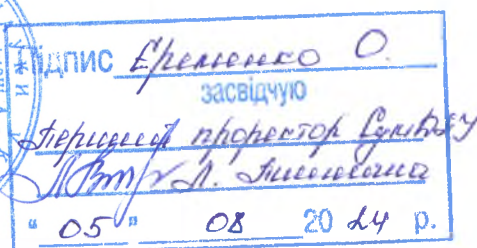 підпис Єременко О.
засвідчую
Перший проректор СумДПУ
Л.
“ 05 ” 08 20 24 р.